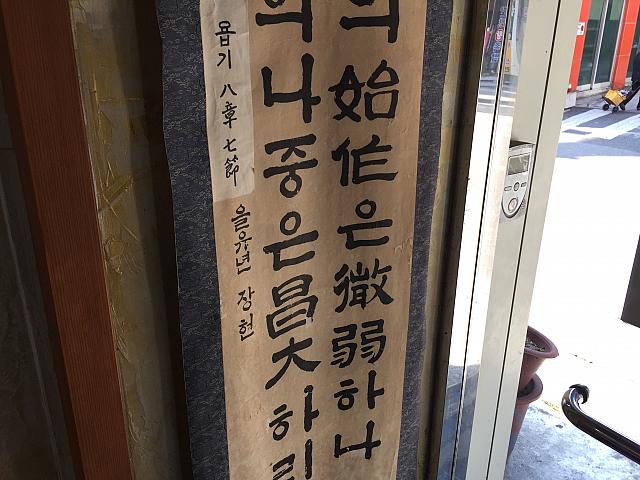 의 始作은 微弱하나
의 나중은 昌大하리
욥기 八章 七節
을유년 장현